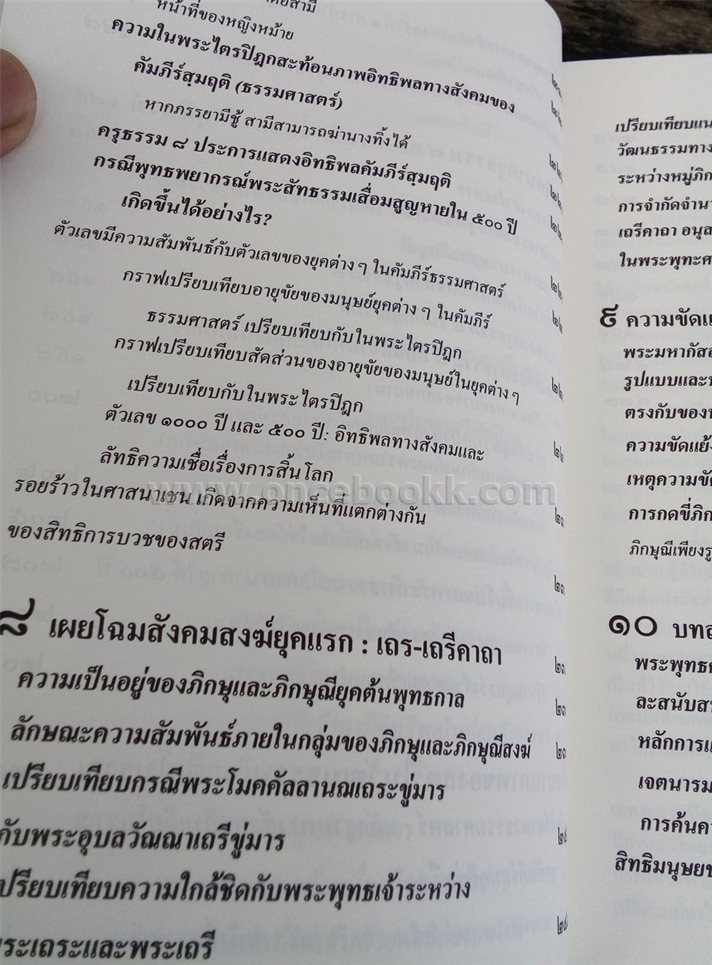 หน้าที่ของหญิงหม้าย
ความในพระไตรปิฎกสะท้อนภาพอิทธิพลทางสังคมของ
คัมภีร์สฺมฤติ (ธรรมศาสตร์)
หากภรรยามีชู้ สามีสามารถฆ่านางทิ้งได้
ครุธรรม ๘ ประการแสดงอิทธิพลคัมภีร์สฺมฤติ
กรณีพุทธพยากรณ์พระสัทธรรมเสื่อมสูญหายใน ๕๐๐ ปี
เกิดขึ้นได้อย่างไร?
ตัวเลขมีความสัมพันธ์กับตัวเลขของยุคต่าง ๆ ในคัมภีร์ธรรมศาสตร์
กราฟเปรียบเทียบอายุขัยของมนุษย์ยุคต่าง ๆ ในคัมภีร์
ธรรมศาสตร์ เปรียบเทียบกับในพระไตรปิฎก
กราฟเปรียบเทียบสัดส่วนของอายุขัยของมนุษย์ในยุคต่าง ๆ
เปรียบเทียบกับในพระไตรปิฎก
ตัวเลข ๑๐๐๐ ปี และ ๕๐๐ ปี: อิทธิพลทางสังคมและ
ลัทธิความเชื่อเรื่องการสิ้นโลก
www.oncebookk.com
รอยร้าวในศาสนาเชน เกิดจากความเห็นที่แตกต่างกัน
ของสิทธิการบวชของสตรี
๘ เผยโฉมสังคมสงฆ์ยุคแรก : เถร-เถรีคาถา
ความเป็นอยู่ของภิกษุและภิกษุณียุคต้นพุทธกาล
ลักษณะความสัมพันธ์ภายในกลุ่มของภิกษุและภิกษุณีสงฆ์
เปรียบเทียบกรณีพระโมคคัลลานฌเถระขู่มาร
กับพระอุบลวัณณาเถรีขู่มาร
เปรียบเทียบความใกล้ชิดกับพระพุทธเจ้าระหว่าง
พระเถระและพระเถรี
เปรียบเทียบแน
วัฒนธรรมทาง
ระหว่างหมู่ภิก
การจำกัดจำนว
เถรีคาถา อนุล
ในพระพุทะศ
๙ ความขัดแ
พระมหากัส
รูปแบบและ
ตรงกับของ
ความขัดแย้ง
เหตุความขัด
การกดขี่ภิก
ภิกษุณีเพียงรู
๑๐ บท
พระพุทธ
ละสนับส
หลักการแ
เจตนารม
การค้นคว
สิทธิมนุษย